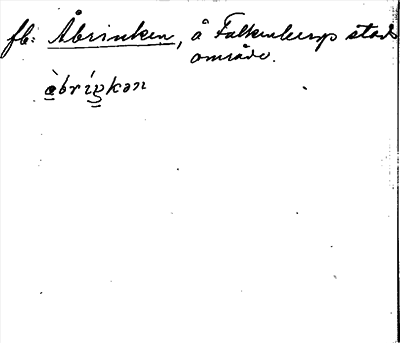 fb: Åbrinken, å Falkenbergs stads
område.
òbríŋkən